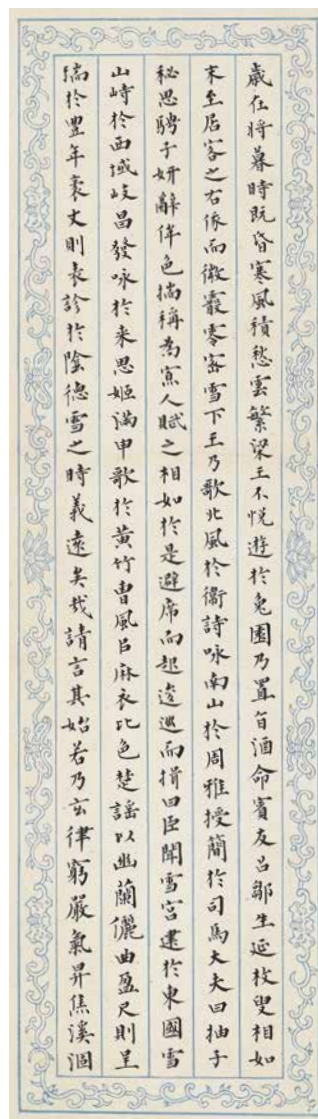 歲在將暮時既昏寒風積愁雲繁梁王不悅遊於兔園乃置旨酒命賓友召鄒生延枚叟相如
末至居客之右俄而微霰零密雪下王乃歌北風於衛詩咏南山於周雅授簡於司馬大夫曰抽子
秘思騁子妍辭侔色揣稱為寡人賦之相如於是避席而起逡巡而揖曰臣聞雪宮建於東國雪
山峙於西域岐昌發咏於来思姬滿申歌於黃竹曹風㠯麻衣比色楚謠以幽蘭儷曲盈尺則呈
瑞於豐年袤丈則表沴於陰德雪之時義遠矣哉請言其始若乃玄律窮嚴氣昇焦溪涸